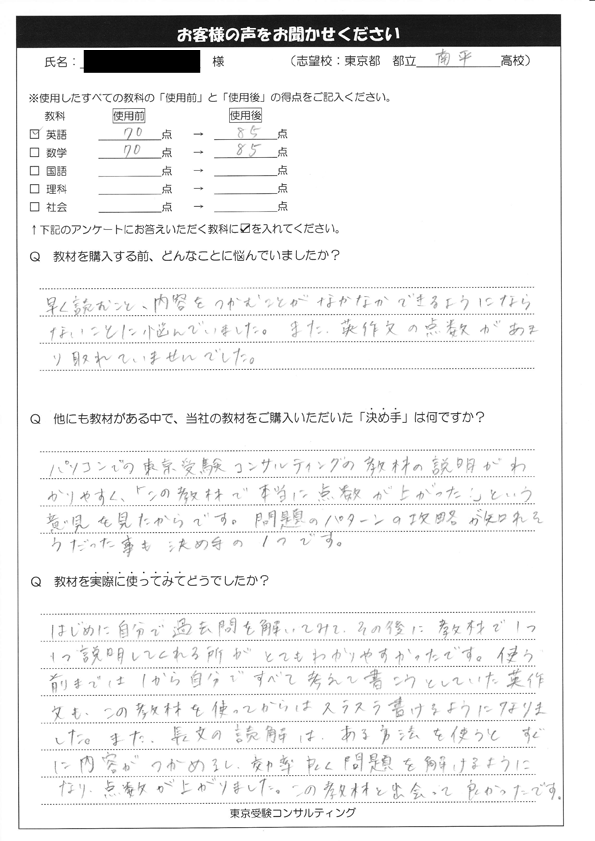 お客様の声をお聞かせください
氏名： 様 （志望校：東京都 都立 南平 高校）
※使用したすべての教科の「使用前」と「使用後」の得点をご記入ください。
教科 使用前 使用後
☑ 英語 70 点 → 85 点
□ 数学 70 点 → 85 点
□ 国語 点 → 点
□ 理科 点 → 点
□ 社会 点 → 点
↑下記のアンケートにお答えいただく教科に☑を入れてください。
Q 教材を購入する前、どんなことに悩んでいましたか？
早く読むこと、内容をつかむことがなかなかできるようになら
ないことに悩んでいました。また、英作文の点数があま
り取れていませんでした。
Q 他にも教材がある中で、当社の教材をご購入いただいた「決め手」は何ですか？
パソコンでの東京受験コンサルティングの教材の説明がわ
かりやすく、「この教材で本当に点数が上がった！」という
意見を見たからです。問題のパターンの攻略が知れそ
うだった事も決め手の1つです。
Q 教材を実際に使ってみてどうでしたか？
はじめに自分で過去問を解いてみて、その後に教材で1つ
1つ説明してくれる所がとてもわかりやすかったです。使う
前までは1から自分ですべて考えて書こうとしていた英作
文も、この教材を使ってからはスラスラ書けるようになりま
した。また、長文の読解は、ある方法を使うとすぐ
に内容がつかめるし、効率良く問題を解けるように
なり、点数が上がりました。この教材と出会って良かったです。
東京受験コンサルティング